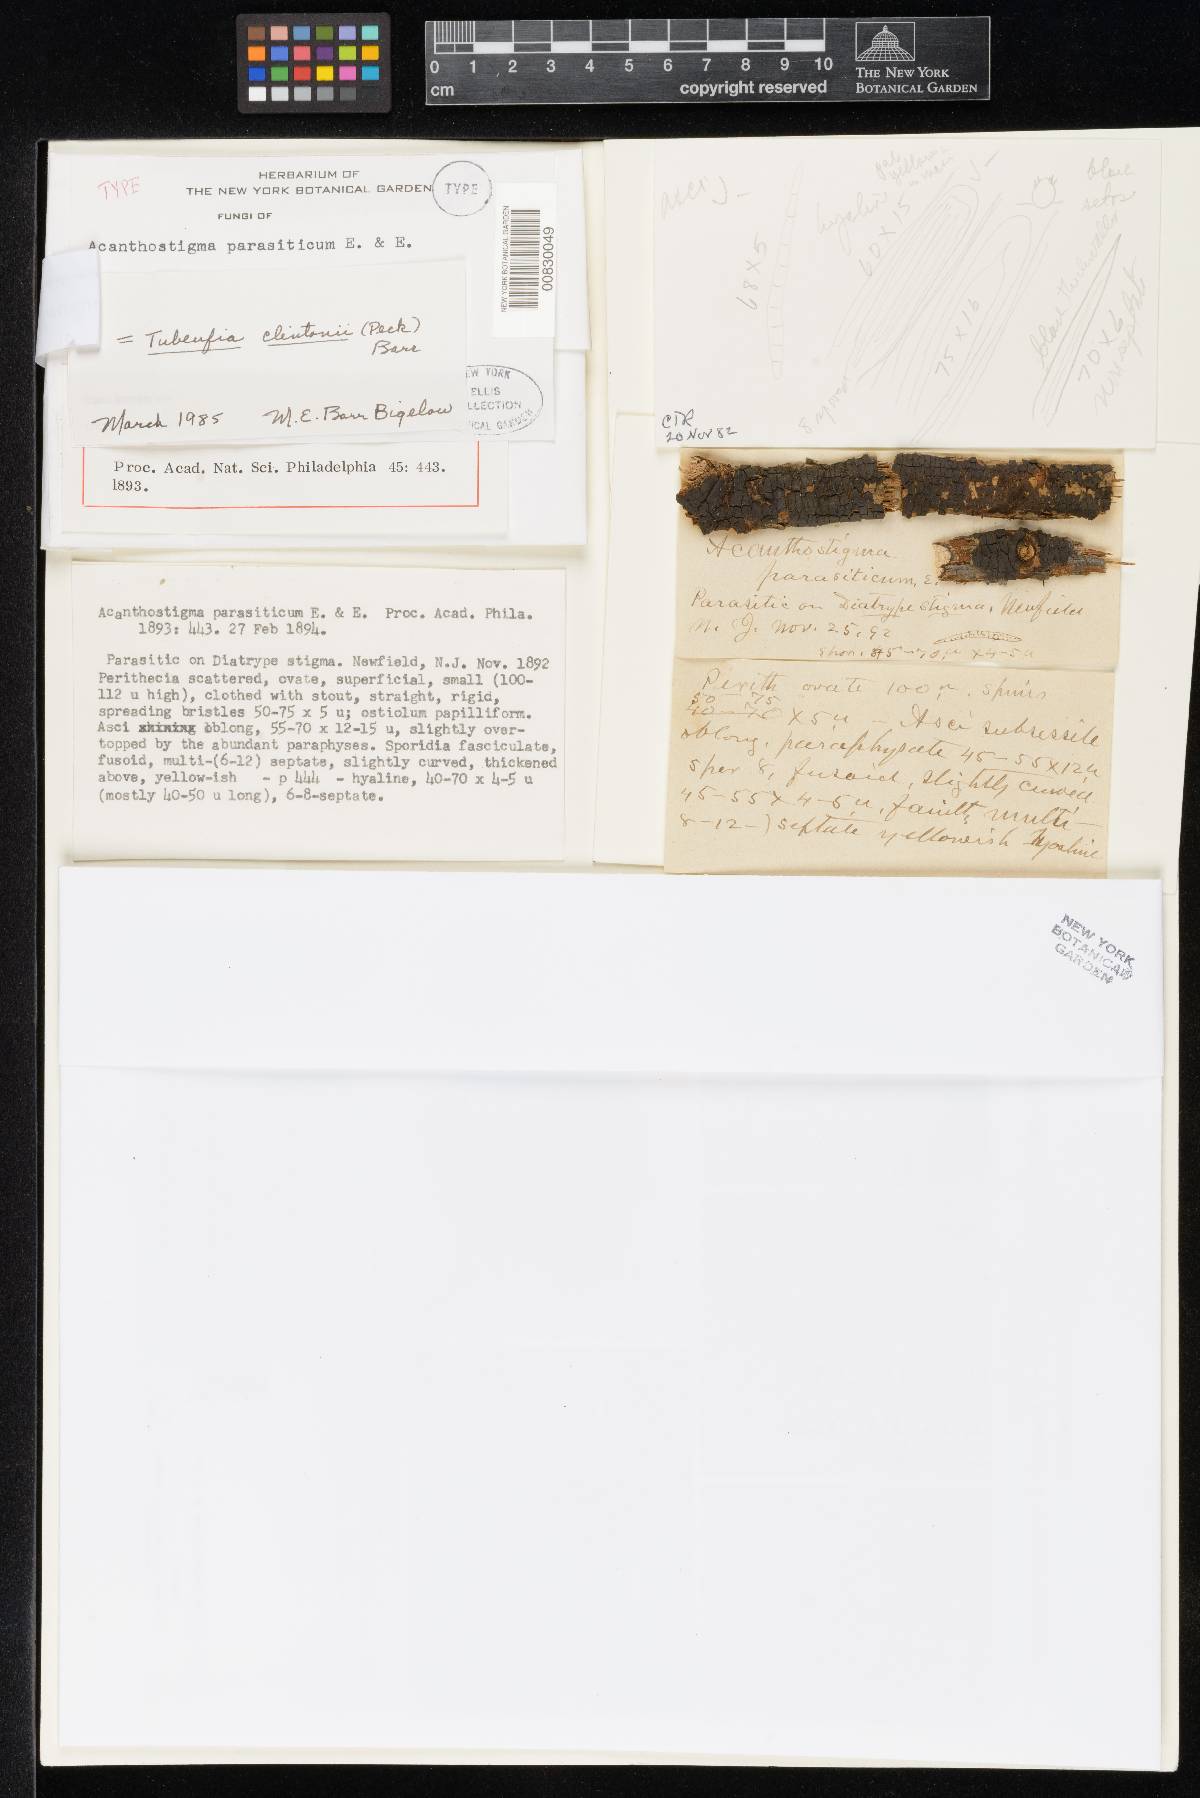 0 1 2 3 4 5 6 7 8 9 10
cm
copyright reserved
THE NEW YORK
BOTANICAL GARDEN
TYPE
HERBARIUM OF
THE NEW YORK BOTANICAL GARDEN
TYPE
FUNGI OF
Acanthostigma parasiticum E. & E.
NEW YORK BOTANICAL GARDEN
00830049
= Tubeufia clintonii (Peck)
Barr
March 1985 M. E. Barr Bigelow
EW YORK
ELLIS
LLECTION
ICAL GARDEN
Proc. Acad. Nat. Sci. Philadelphia 45: 443.
1893.
Acanthostigma parasiticum E. & E. Proc. Acad. Phila.
1893: 443. 27 Feb 1894.
Parasitic on Diatrype stigma. Newfield, N.J. Nov. 1892
Perithecia scattered, ovate, superficial, small (100-
112 u high), clothed with stout, straight, rigid,
spreading bristles 50-75 x 5 u; ostiolum papilliform.
Asci oblong, 55-70 x 12-15 u, slightly over-
topped by the abundant paraphyses. Sporidia fasciculate,
fusoid, multi-(6-12) septate, slightly curved, thickened
above, yellow-ish - p 444 - hyaline, 40-70 x 4-5 u
(mostly 40-50 u long), 6-8-septate.
asci J-
68 x 5
hyalin
60 x 15
J-
75 x 16
8 spored
black
setae
black thick walled
70 x 6
nonseptate
CTR
20 Nov 82
Acanthostigma
parasiticum, E.
Parasitic on Diatrype stigma, Newfield
N. J. Nov. 25, 92
spor. 45-70 u x 4-5 u
Perith ovate 100 u. spines
50 75
40-70 x 5 u - Asci subsessile
oblong, paraphysate 45-55 x 12 u
spor 8, fusoid, slightly curved
45-55 x 4-5 u, faintly multi-
8-12-) septate yellowish hyaline
NEW YORK
BOTANICAL
GARDEN